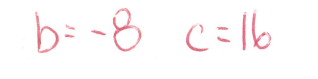 b=-8 c=16